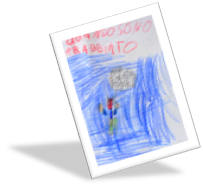 QUANDO SONO
ARRABBIATO